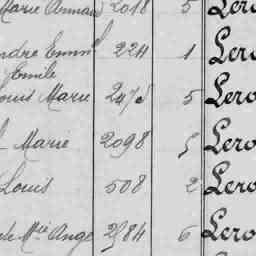 Marie Armand 2018 5 Lero
André Emm^l 224 1 Lero
Emile
Louis Marie 2475 5 Lero
Marie 2098 5 Lero
Louis 508 2 Lero
M^ie Ange 2584 6 Lero